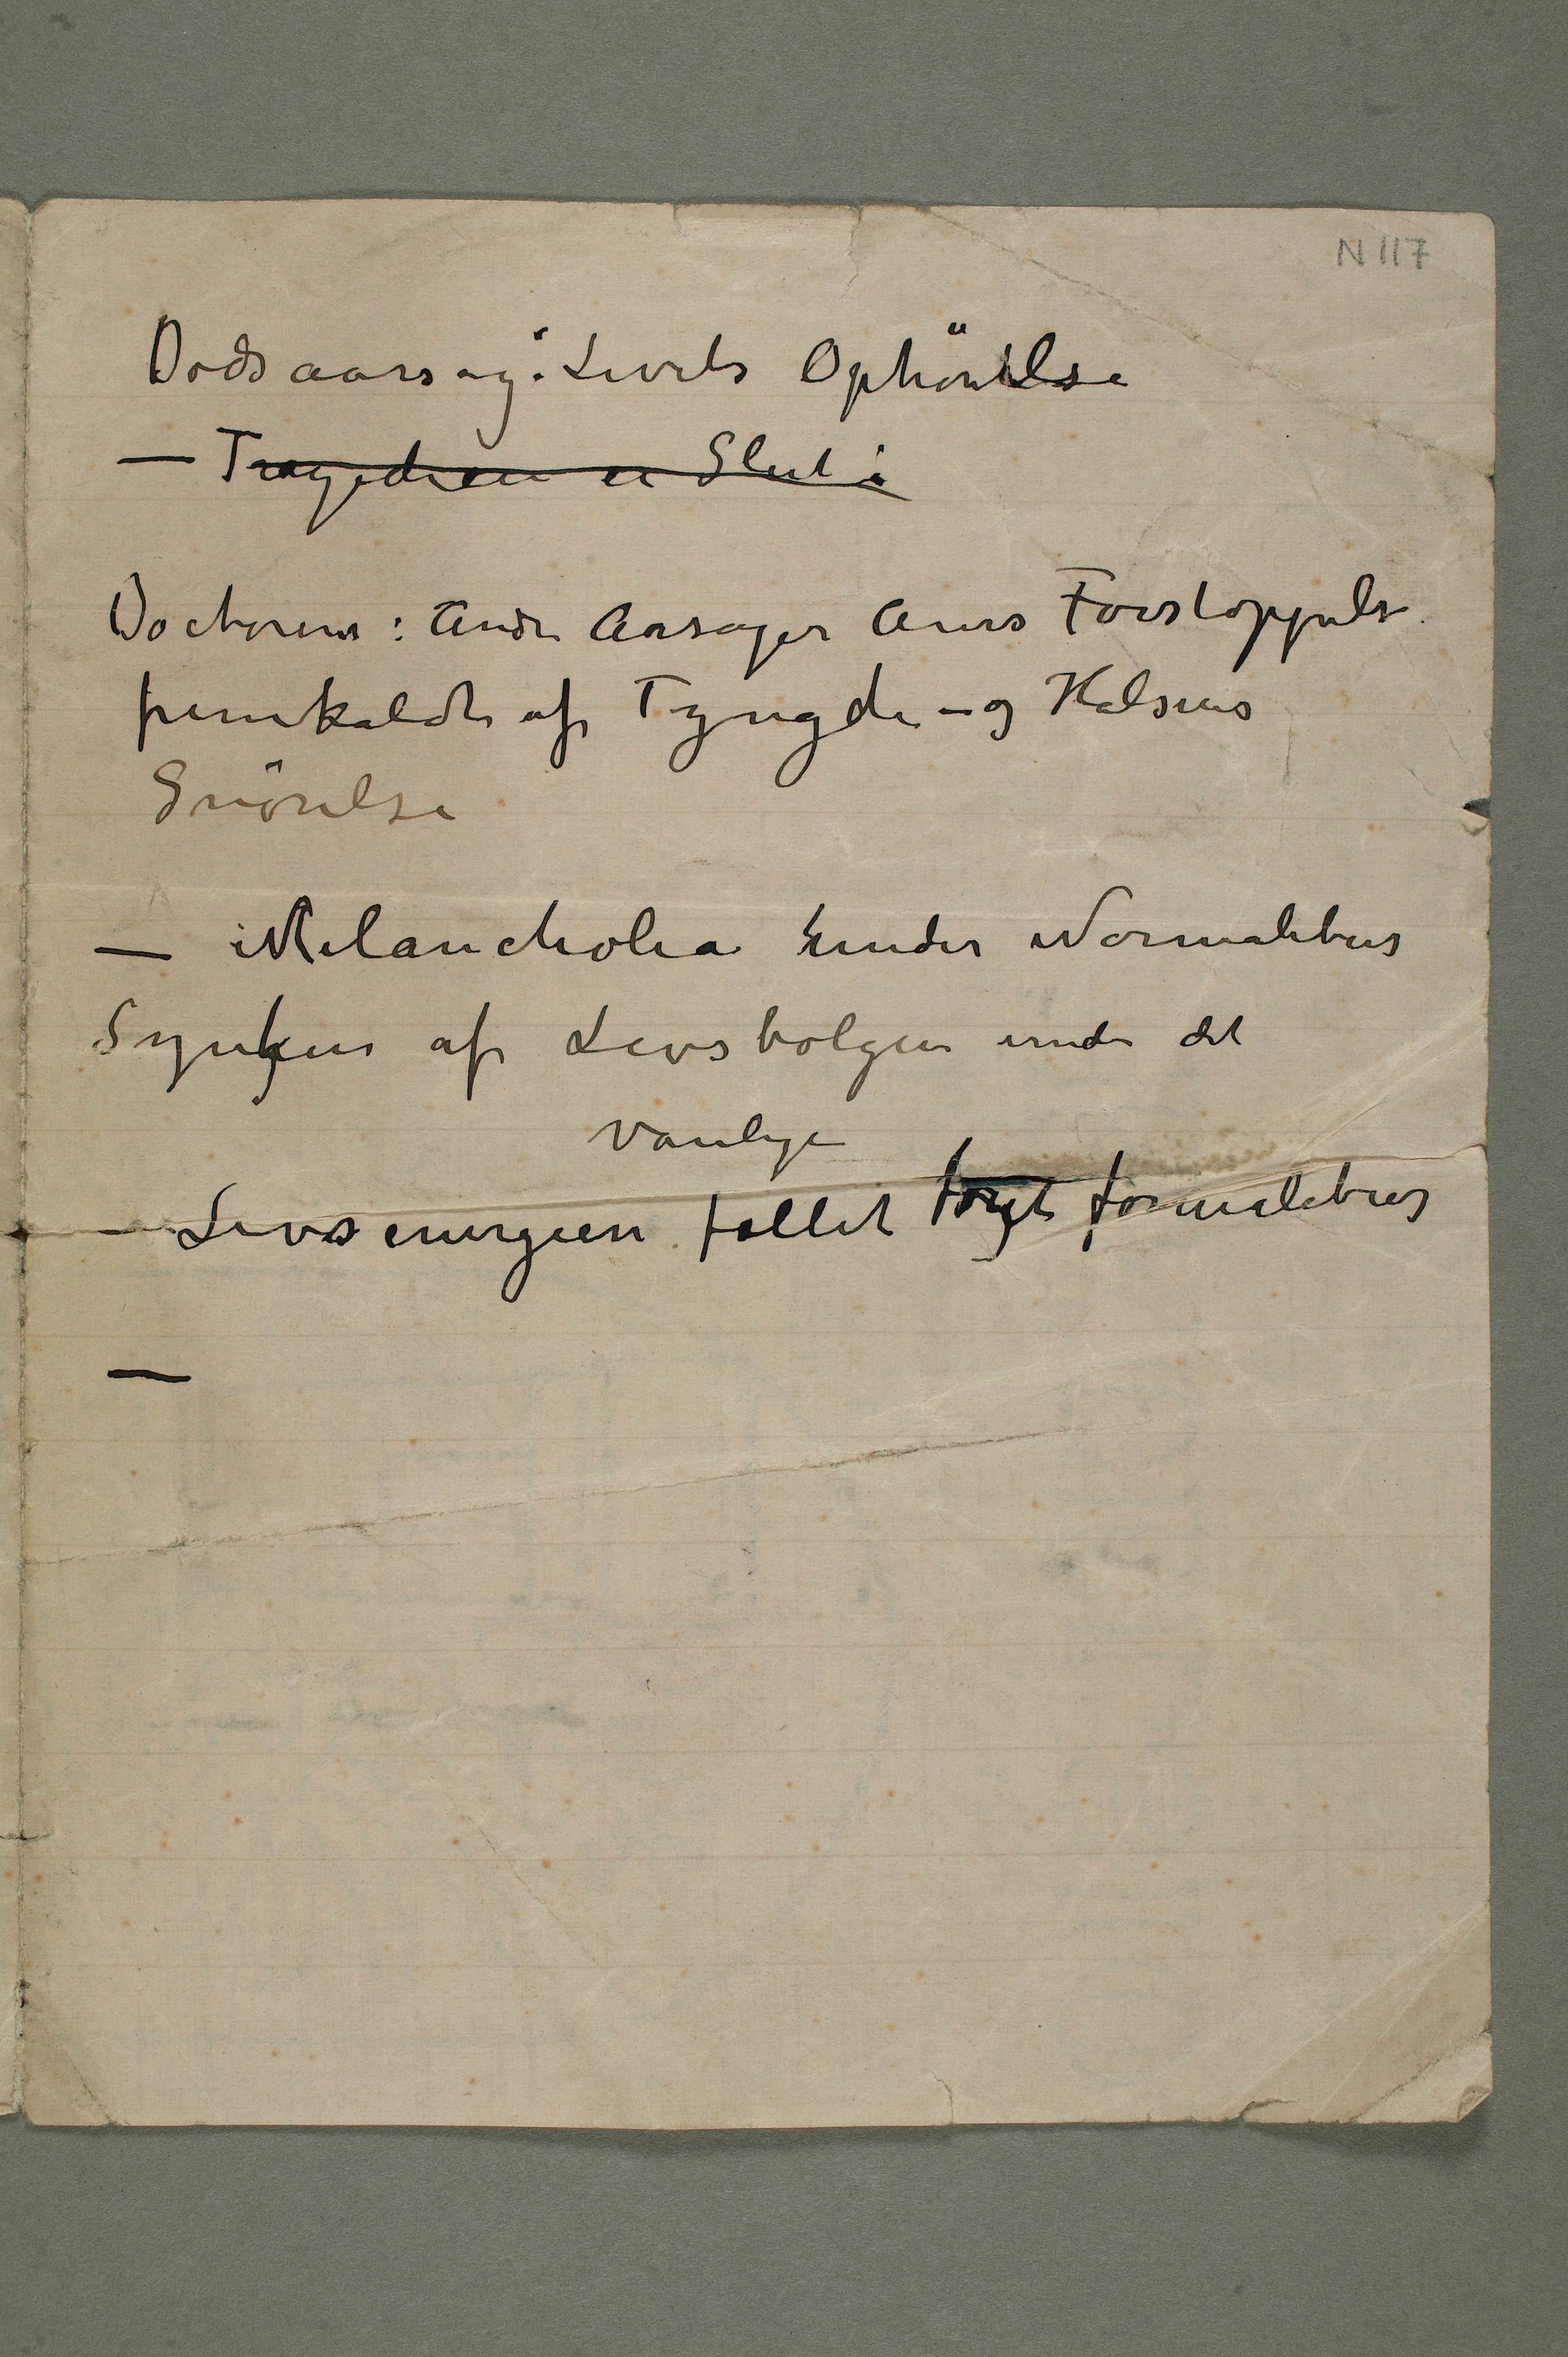 N 117
Dødsaarsag: Livets Ophörelse
— Tragedien er Slut:
Doctoren: Andre Aarsager Anus Forstoppelse
fremkaldt af Tyngde – og Halsens
Snörelse
— Melancholia under Normalibus
Synken af Livsbølgen under det
vanlige
– Livsenergien faldet formalibus
—